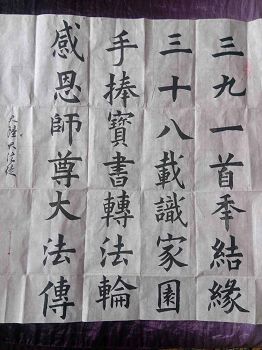 三九一首季結緣
三十八載識家園
手捧寶書轉法輪
感恩師尊大法傳
大陸大法徒